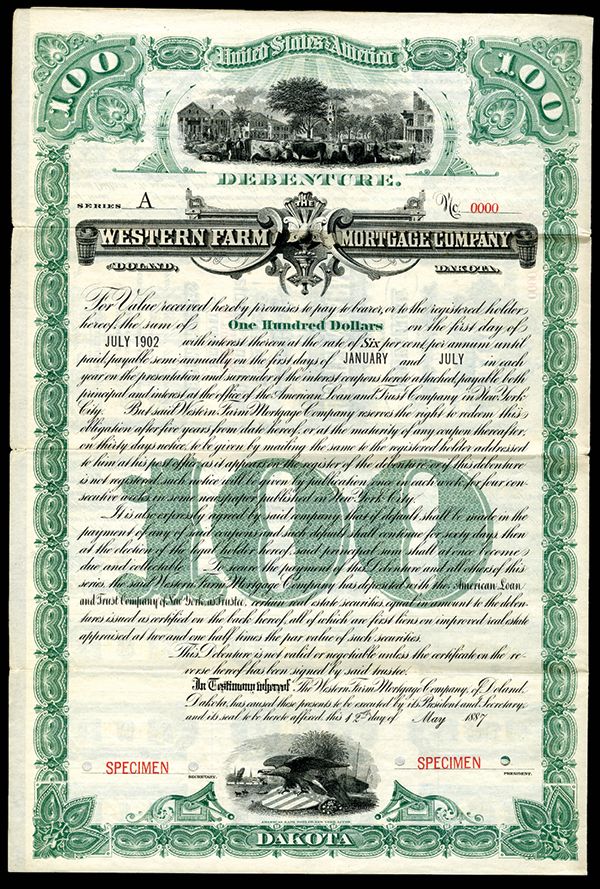 United States of America
100 100
DEBENTURE.
SERIES A No. 0000
THE
WESTERN FARM MORTGAGE COMPANY
DOLAND, DAKOTA.
For Value received hereby promises to pay to bearer, or to the registered holder
hereof, the sum of One Hundred Dollars on the first day of
JULY 1902 with interest thereon at the rate of Six per cent, per annum until
paid, payable semi-annually on the first days of JANUARY and JULY in each
year on the presentation and surrender of the interest coupons hereto attached, payable both
principal and interest at the office of the American Loan and Trust Company in New York
City. But said Western Farm Mortgage Company reserves the right to redeem this
obligation after five years from date hereof, or at the maturity of any coupon thereafter,
on thirty days notice, to be given by mailing the same to the registered holder addressed
to him at his post office as it appears on the register of the debentures or if this debenture
is not registered, such notice will be given by publication once in each week for four con-
secutive weeks, in some newspaper published in New York City.
It is also expressly agreed by said company, that if default shall be made in the
payment of any of said coupons and such default shall continue for sixty days then
at the election of the legal holder hereof, said principal sum shall at once become
due and collectable. To secure the payment of this Debenture and all others of this
series, the said Western Farm Mortgage Company has deposited with the American Loan
and Trust Company of New York, as Trustee, certain real estate securities, equal in amount to the deben-
tures issued as certified on the back hereof, all of which are first liens on improved real estate
appraised at two and one half times the par value of such securities.
This Debenture is not valid or negotiable unless the certificate on the re-
verse hereof has been signed by said trustee.
In Testimony whereof The Western Farm Mortgage Company, of Doland,
Dakota, has caused these presents to be executed by its President and Secretary,
and its seal to be hereto affixed, this 12th day of May 1887
100
SPECIMEN SPECIMEN
SECRETARY. PRESIDENT.
AMERICAN BANK NOTE CO. NEW YORK.
DAKOTA